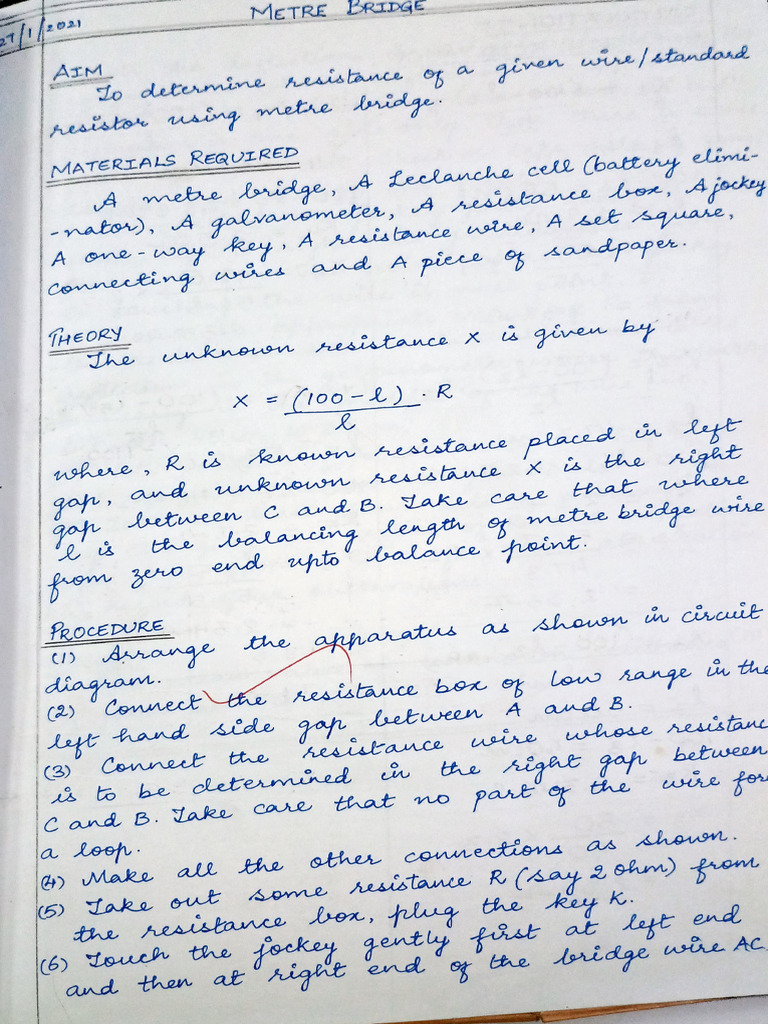 METRE BRIDGE
27/1/2021
AIM
To determine resistance of a given wire/standard
resistor using metre bridge.
MATERIALS REQUIRED
A metre bridge, A Leclanche cell (battery elimi-
-nator), A galvanometer, A resistance box, A jockey
A one-way key, A resistance wire, A set square,
connecting wires and A piece of sandpaper.
THEORY
The unknown resistance X is given by
X = (100 - l) / l . R
where, R is known resistance placed in left
gap, and unknown resistance X is the right
gap between C and B. Take care that where
l is the balancing length of metre bridge wire
from zero end upto balance point.
PROCEDURE
(1) Arrange the apparatus as shown in circuit
diagram.
(2) Connect the resistance box of low range in the
left hand side gap between A and B.
(3) Connect the resistance wire whose resistance
is to be determined in the right gap between
C and B. Take care that no part of the wire for
a loop.
(4) Make all the other connections as shown.
(5) Take out some resistance R (say 2 ohm) from
the resistance box, plug the key K.
(6) Touch the jockey gently first at left end
and then at right end of the bridge wire AC.